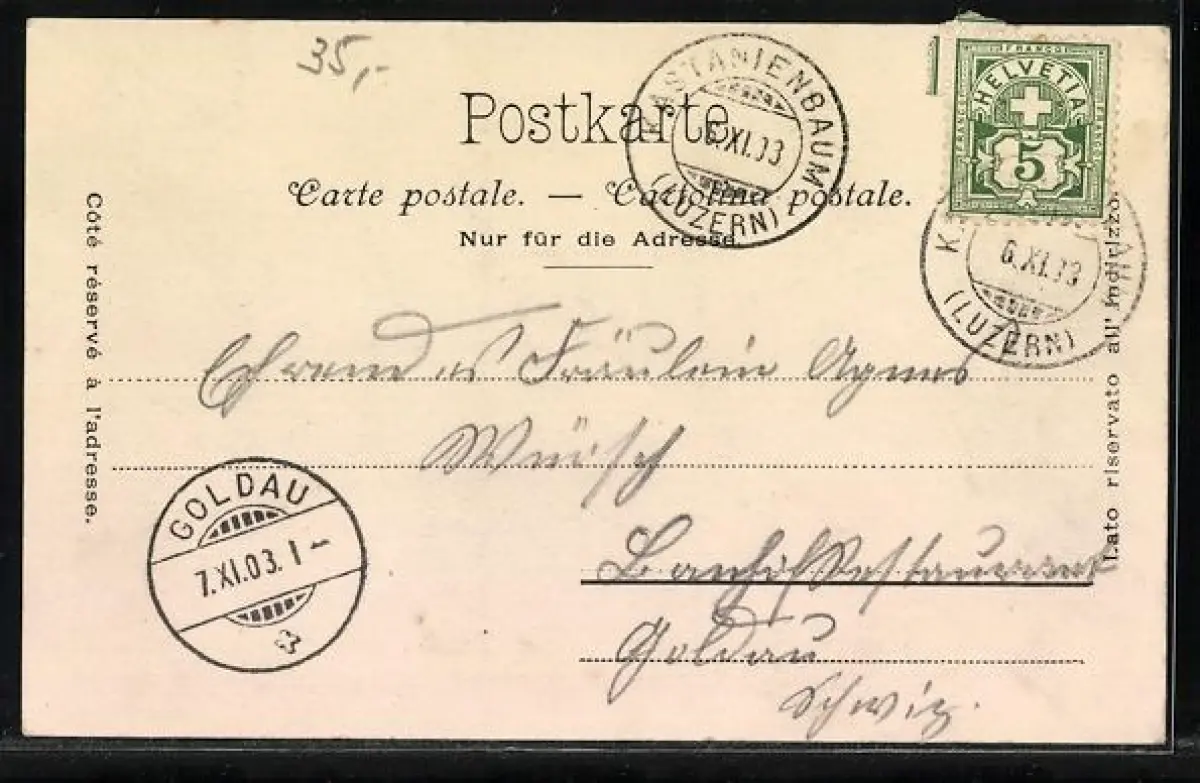 35,-
Postkarte
Carte postale. — Cartolina postale.
Nur für die Adresse.
Côté réservé à l'adresse.
Lato riservato all' indirizzo.
FRANCO
HELVETIA
FRANCO
FRANCO
5
KASTANIENBAUM
6.XI.03
(LUZERN)
6.XI.03
(LUZERN)
Fräulein Agnes
GOLDAU
7.XI.03. I–
Goldau
Schwiz.